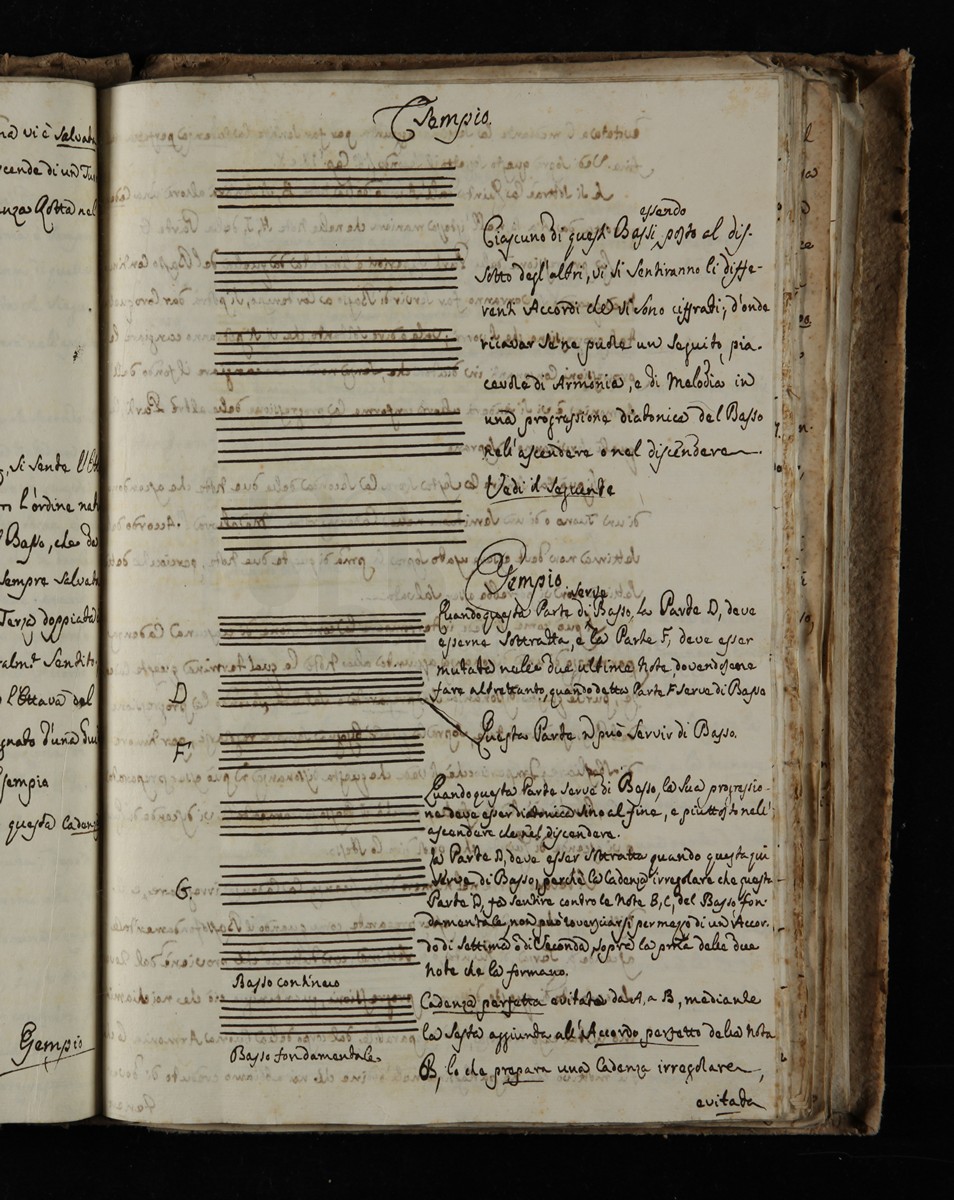 na vi è salvata
cende di un Tuo
anza Rotta nel
si sente l'Ott
l'ordine nat
Basso, che da
sempre salvata
Terza doppiata
ralmte sentito
l'Ottava del
gnato d'una du
sempio
questa Cadenz
Esempio
Esempio.
essendo
Ciascuno di questi Bassi posto al dis-
sotto degl'altri, vi si sentiranno li diffe-
renti Accordi che vi sono ciffrati; d'onde
ricavar se ne puole un seguito pia-
cevole di Armonia, e di Melodia in
una progressione diatonica del Basso
nell'ascendere o nel discendere.
Vedi il seguente
Esempio
serve
Quando questa Parte di Basso, la Parte D, deve
esserne sottratta, e la Parte F, deve esser
mutata nelle due ultime Note, dovendosene
fare altrettanto, quando detta Parte F serve di Basso
D
Questa Parte nō può servir di Basso.
F
Quando questa Parte serve di Basso, la sua progressio-
ne deve esser diatonica sino al fine, e piuttosto nell'
ascendere che nel discendere.
la Parte D, deve esser sottratta quando questa qui
serve di Basso, perchè la Cadenza irregolare che questa
G.
Parte D, fa sentire contro le Note B, C, del Basso fon-
damentale, non può roversciarsi per mezo di un Accor-
do di settima o di seconda, sopra la prma delle due
note che la formano.
Basso continuo
Cadenza perfetta evitata da A, a B, mediante
la sesta aggiunta all'Accordo perfetto della nota
Basso fondamentale.
B, lo che prepara una Cadenza irregolare,
evitada